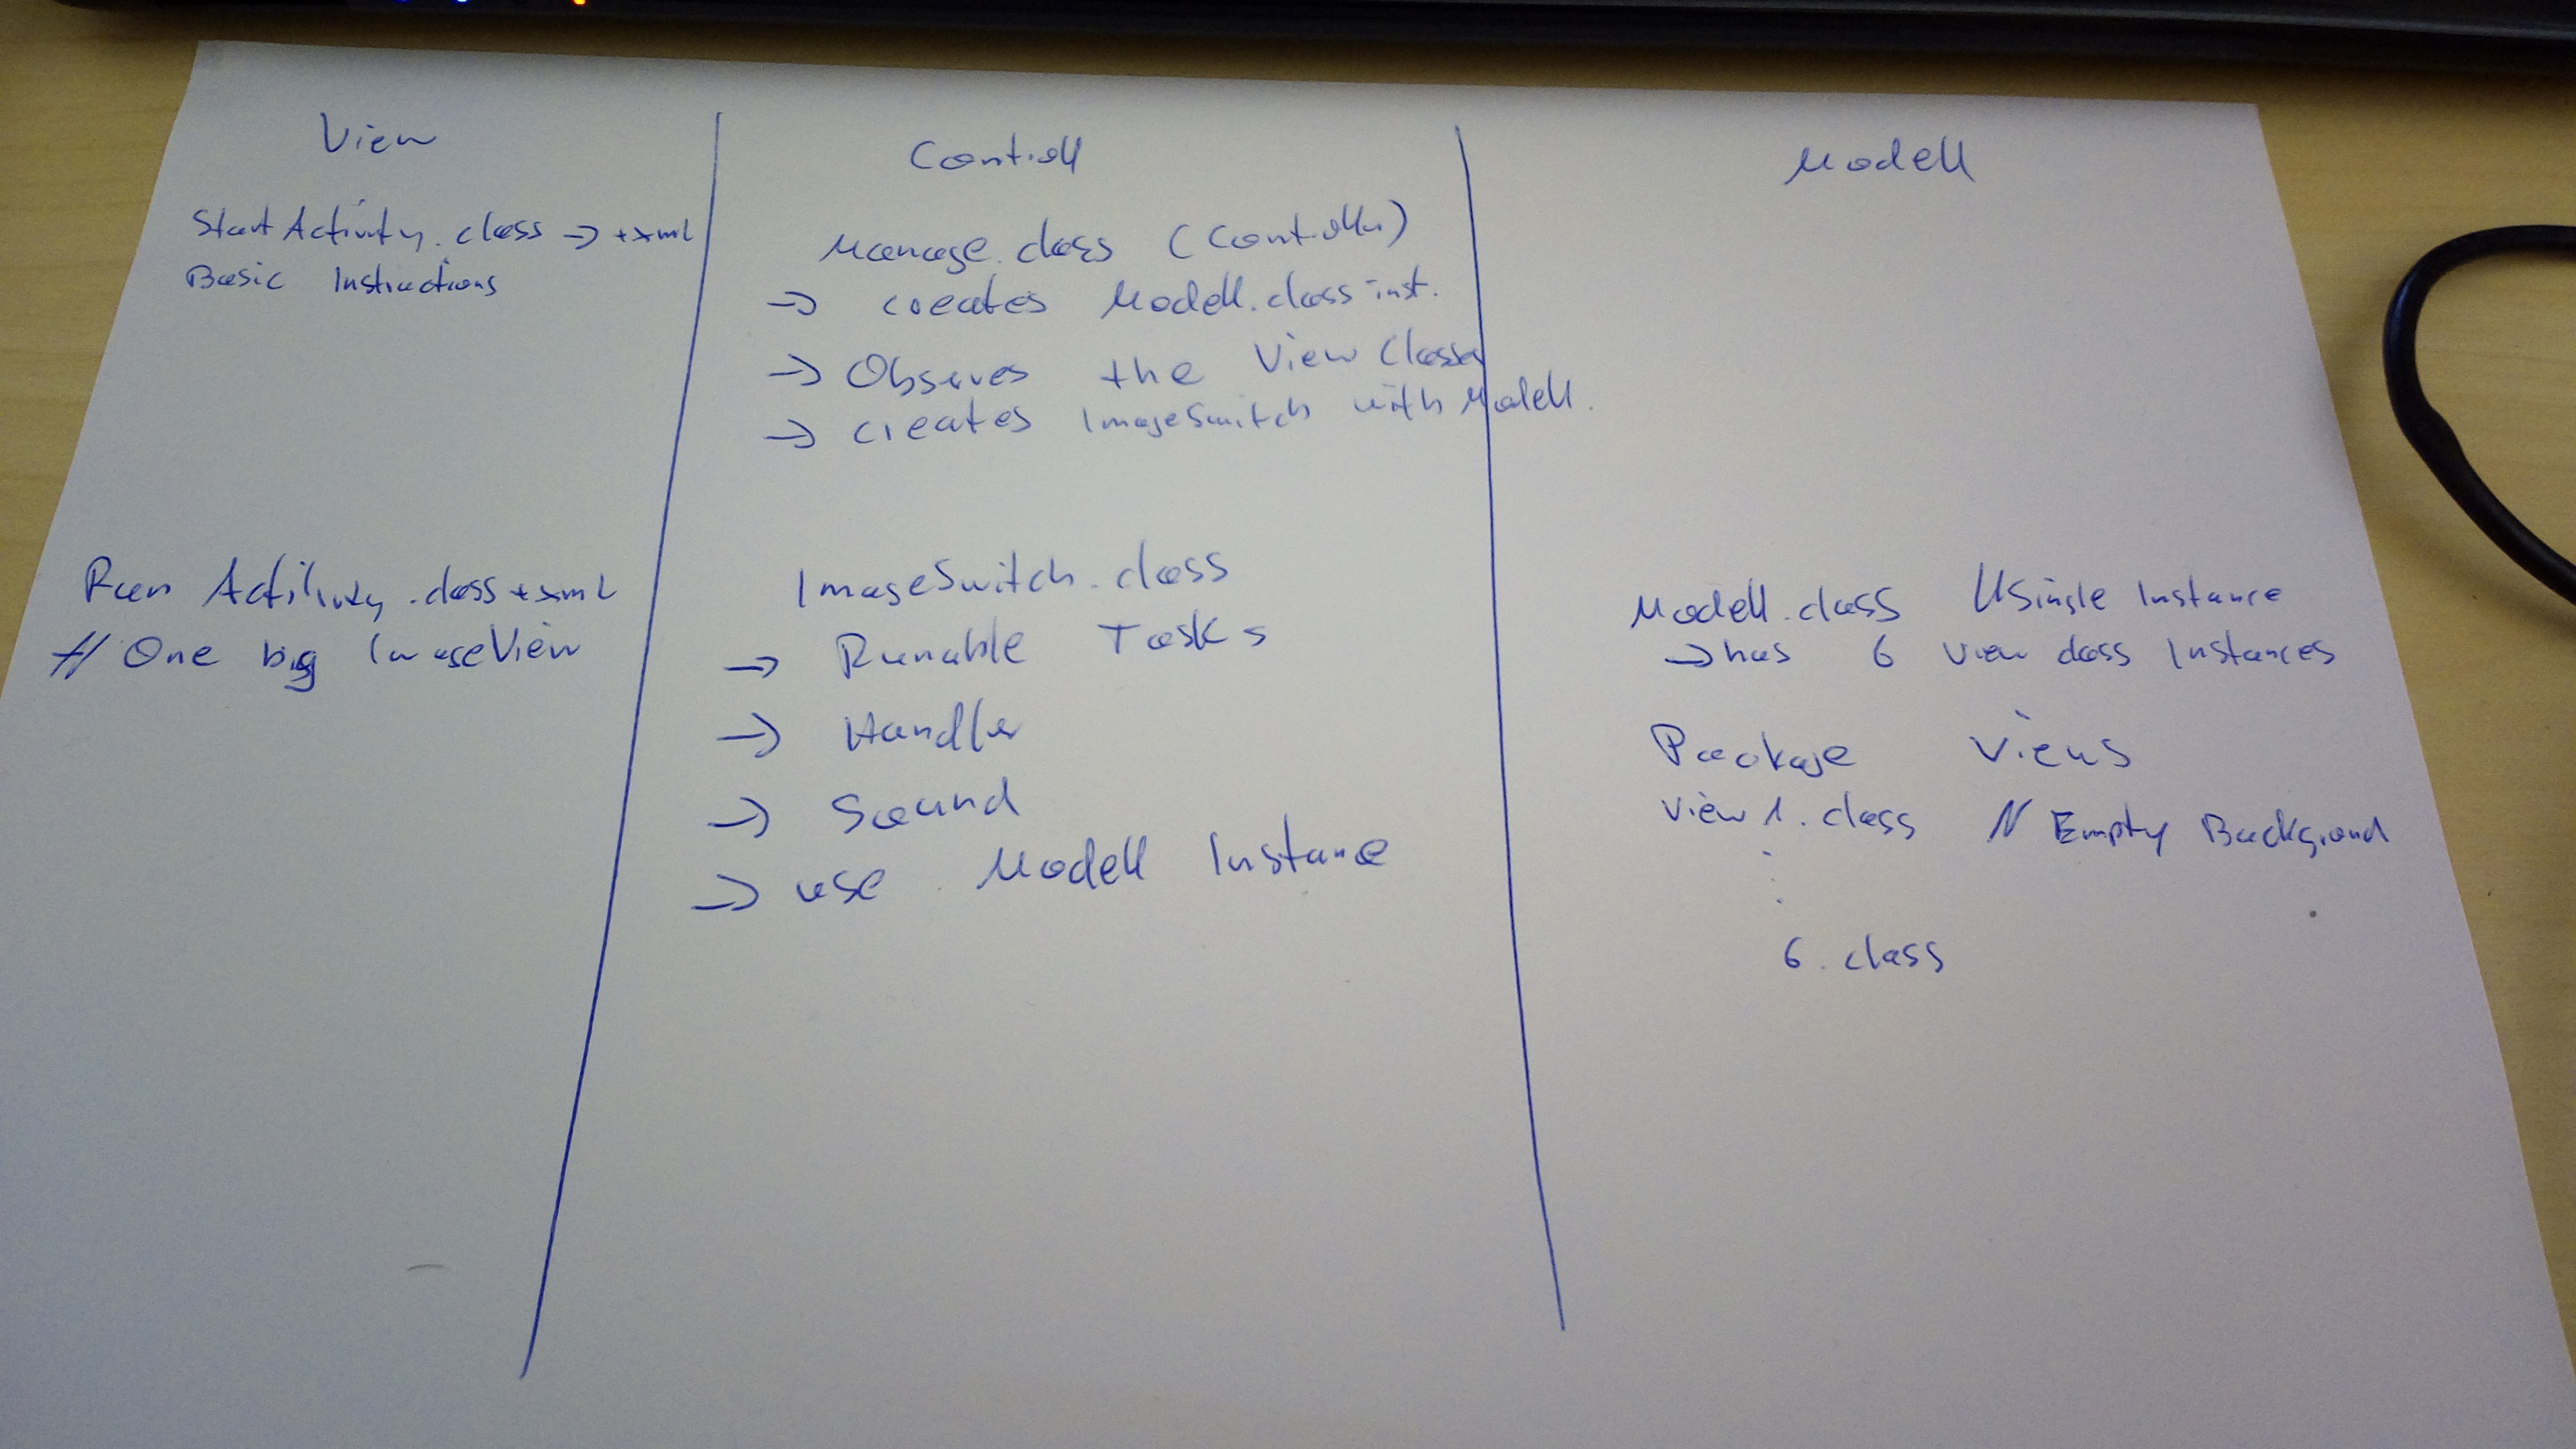 View
Start Activity.class -> + xml
Basic Instructions
Run Actility.class + xml
// One big ImageView
Controll
Manage.class (Controller)
-> creates Modell.class inst.
-> Observes the View Classes
-> creates ImageSwitch with Modell.
ImageSwitch.class
-> Runable Tasks
-> Handler
-> Sound
-> use Modell Instance
Modell
Modell.class // Single Instance
-> has 6 View class Instances
Package Views
View 1.class // Empty Backgrond
.
.
.
6.class